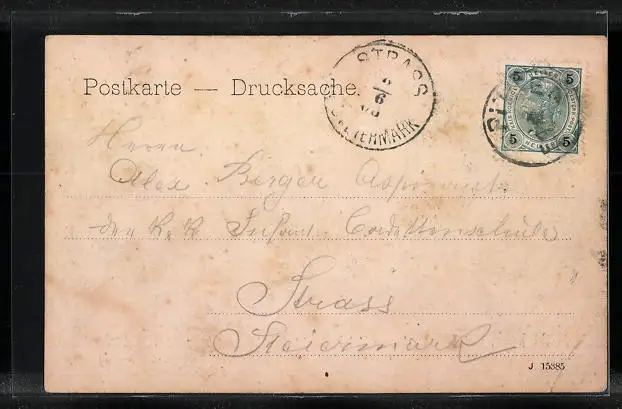 Postkarte — Drucksache.
STRASS
6
STEIERMARK
5 5
5 5
Herrn
Alex Berger Aspirant
der k. k. Infant. Cadettenschule
Strass
Steiermark
J. 15385